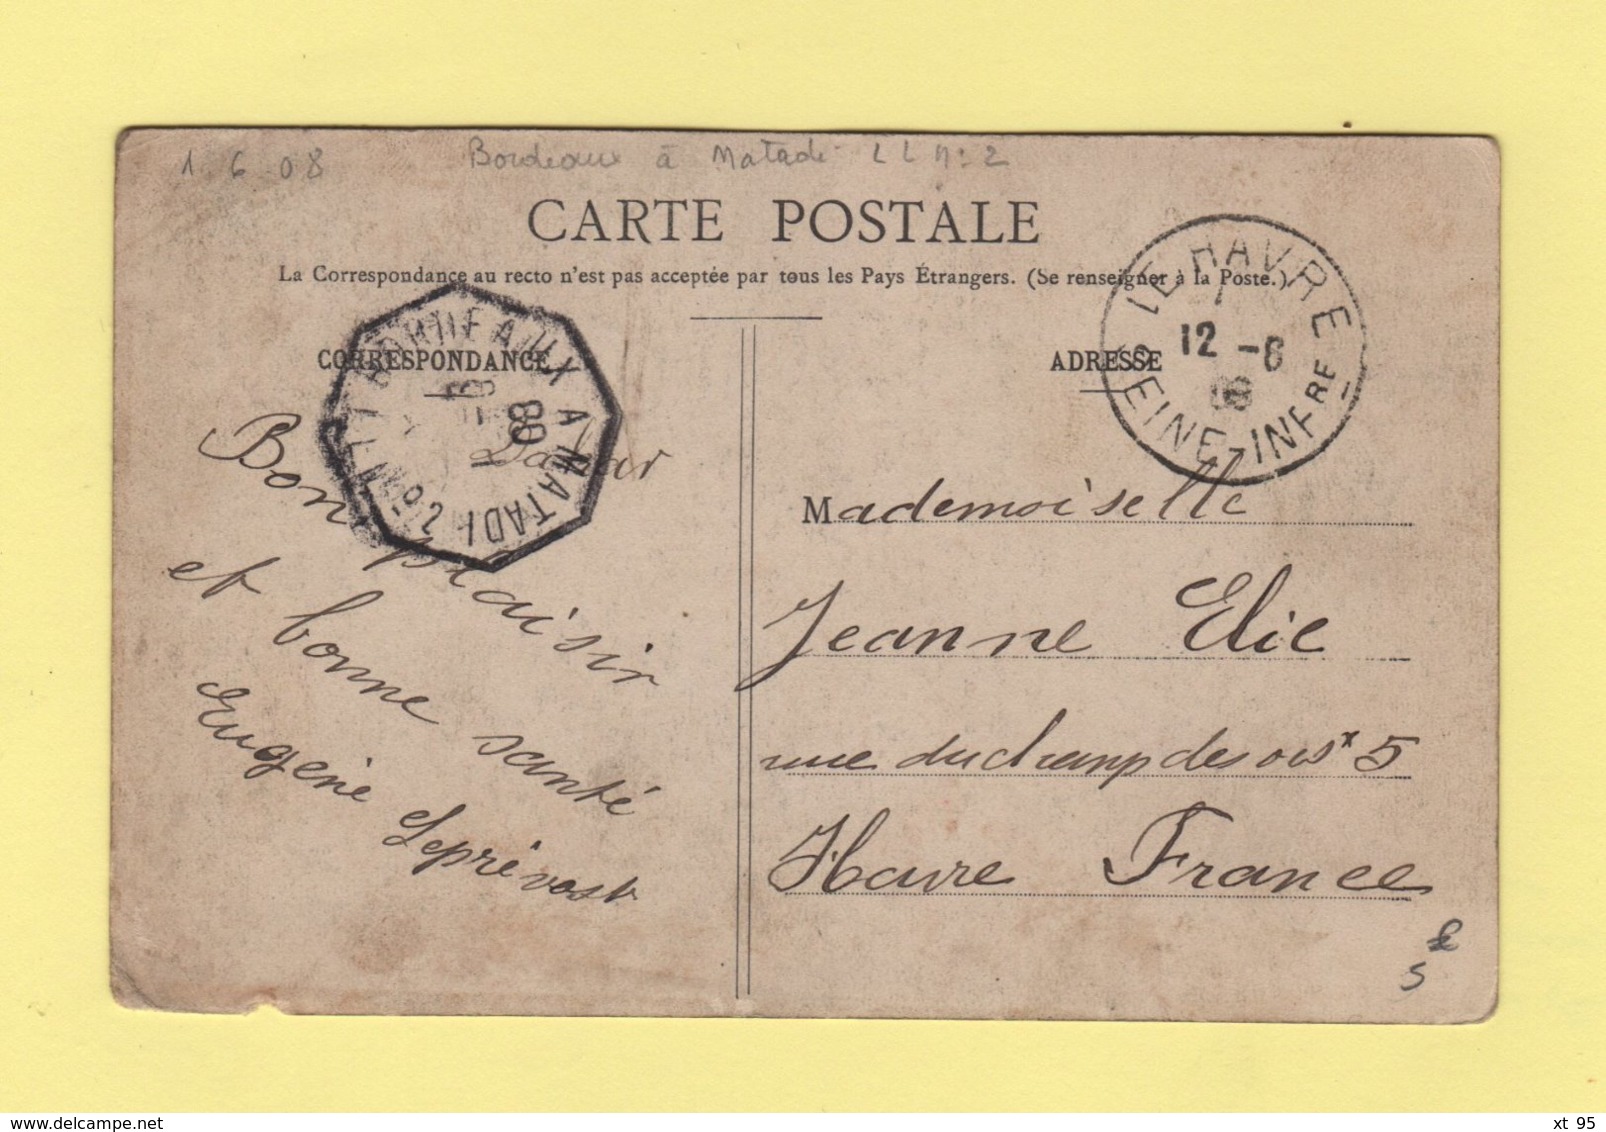 1.6.08 Bordeaux à Matadi LL N:2
CARTE POSTALE
La Correspondance au recto n'est pas acceptée par tous les Pays Étrangers. (Se renseigner à la Poste.)
CORRESPONDANCE
ADRESSE
BORDEAUX A MATADI L.L. Nº2
08
LE HAVRE
12 -6
08
SEINE-INFRE
Dakar
Bon plaisir
et bonne santé
Eugène Leprévost
Mademoiselle
Jeanne Elie
rue du champ des ois* 5
Havre France
5
xt 95